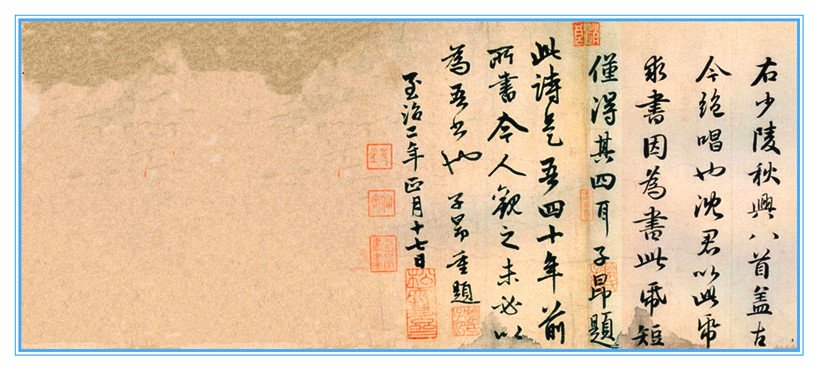 右少陵秋興八首盖古
今絶唱也沈君以此帋
求書因為書此帋短
僅得其四耳子昂題
此詩是吾四十年前
所書今人觀之未必以
為吾書也子昂重題
至治二年正月十七日
松雪齋